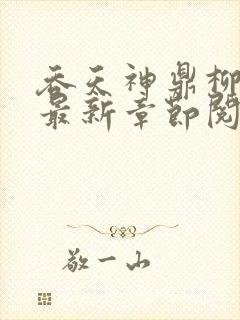 吞天神鼎柳
最新章节阅
敬一山